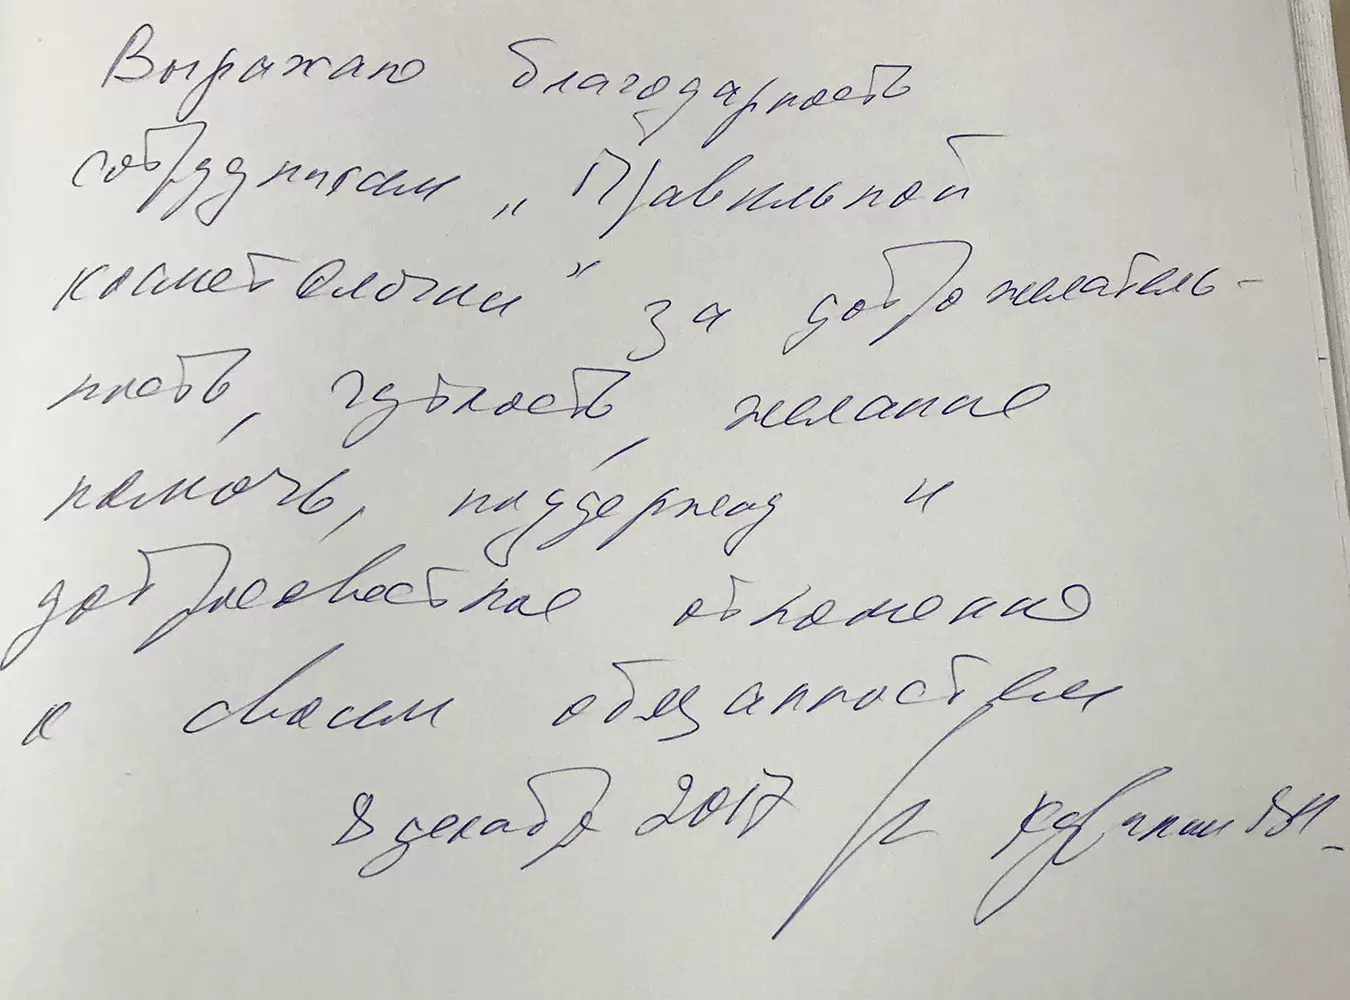 Выражаю благодарность
сотрудникам „Правильной
косметологии” за доброжелатель-
ность, чуткость, желание
помочь, поддержку и
добросовестное отношение
к своим обязанностям
8 декабря 2017